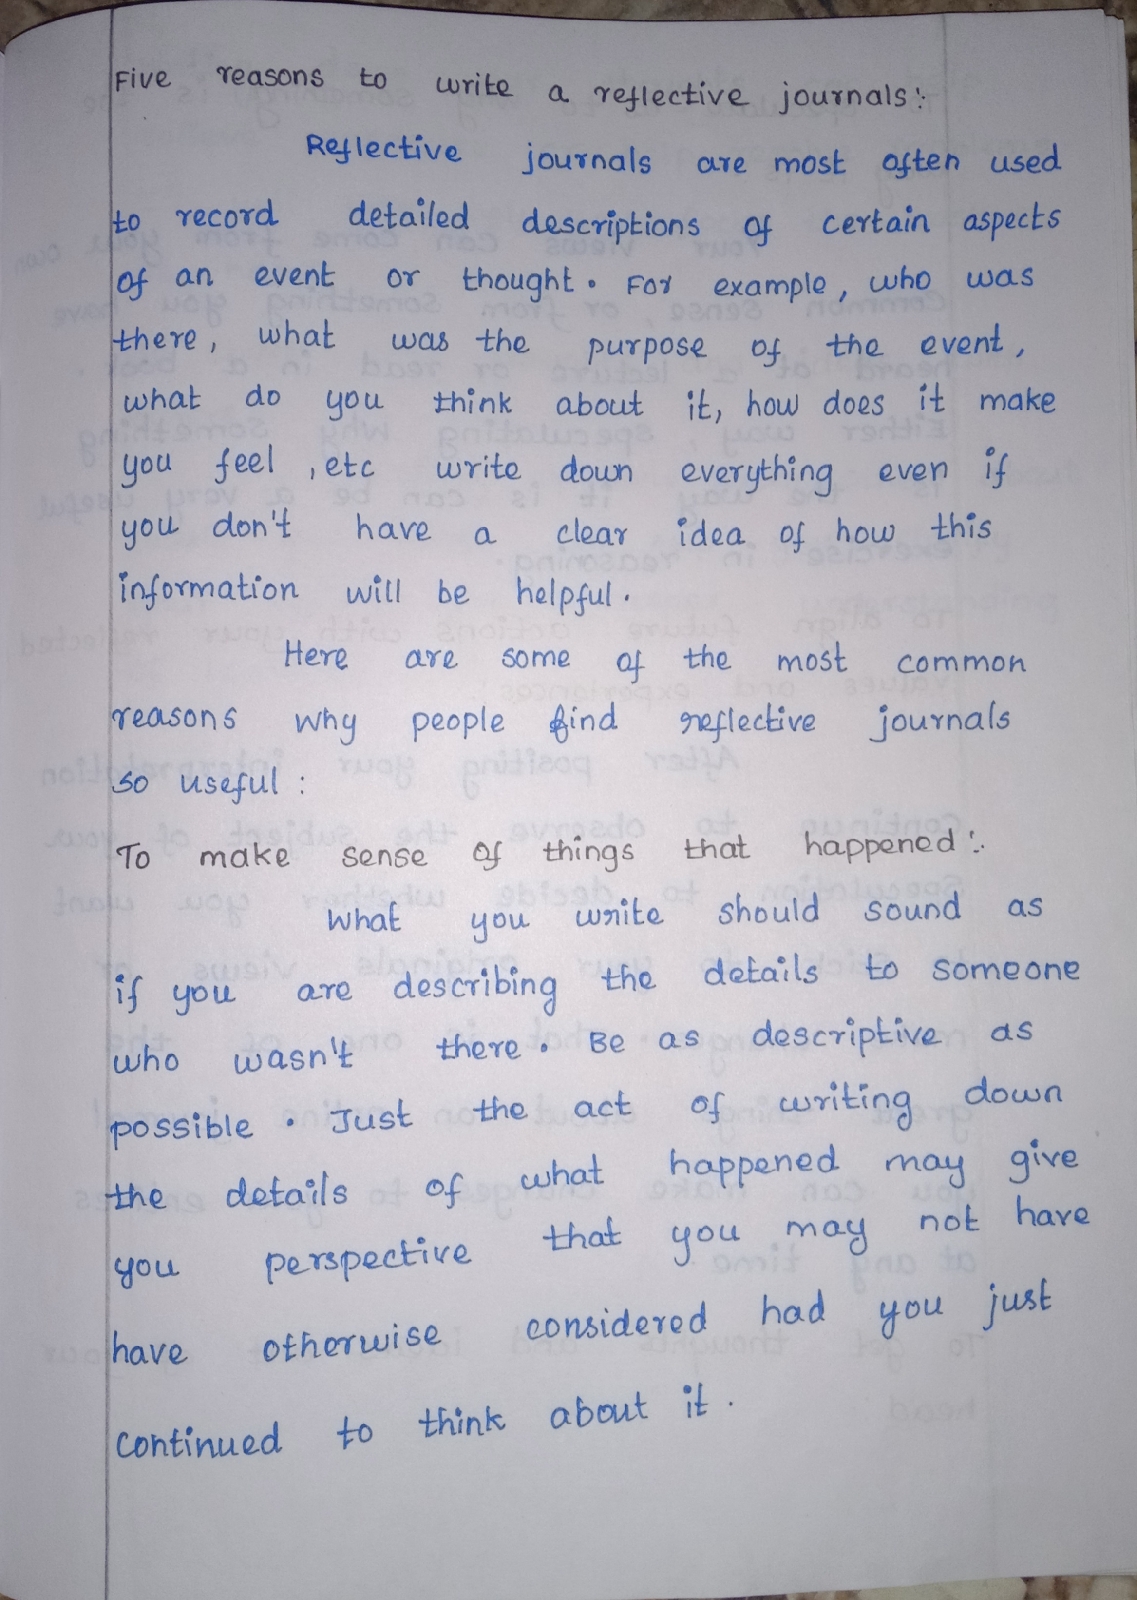 Five reasons to write a reflective journals:
Reflective journals are most often used
to record detailed descriptions of certain aspects
of an event or thought. For example, who was
there, what was the purpose of the event,
what do you think about it, how does it make
you feel, etc write down everything even if
you don't have a clear idea of how this
information will be helpful.
Here are some of the most common
reasons why people find reflective journals
so useful:
To make sense of things that happened:
What you write should sound as
if you are describing the details to someone
who wasn't there. Be as descriptive as
possible. Just the act of writing down
the details of what happened may give
you perspective that you may not have
have otherwise considered had you just
continued to think about it.